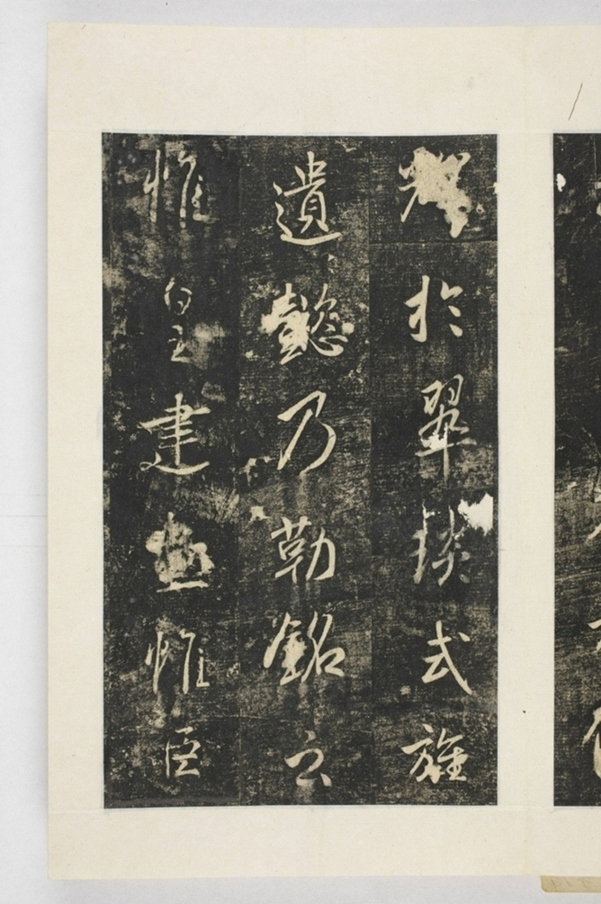 於翠琰式旌
遺懿乃勒銘云
惟皇建惟臣